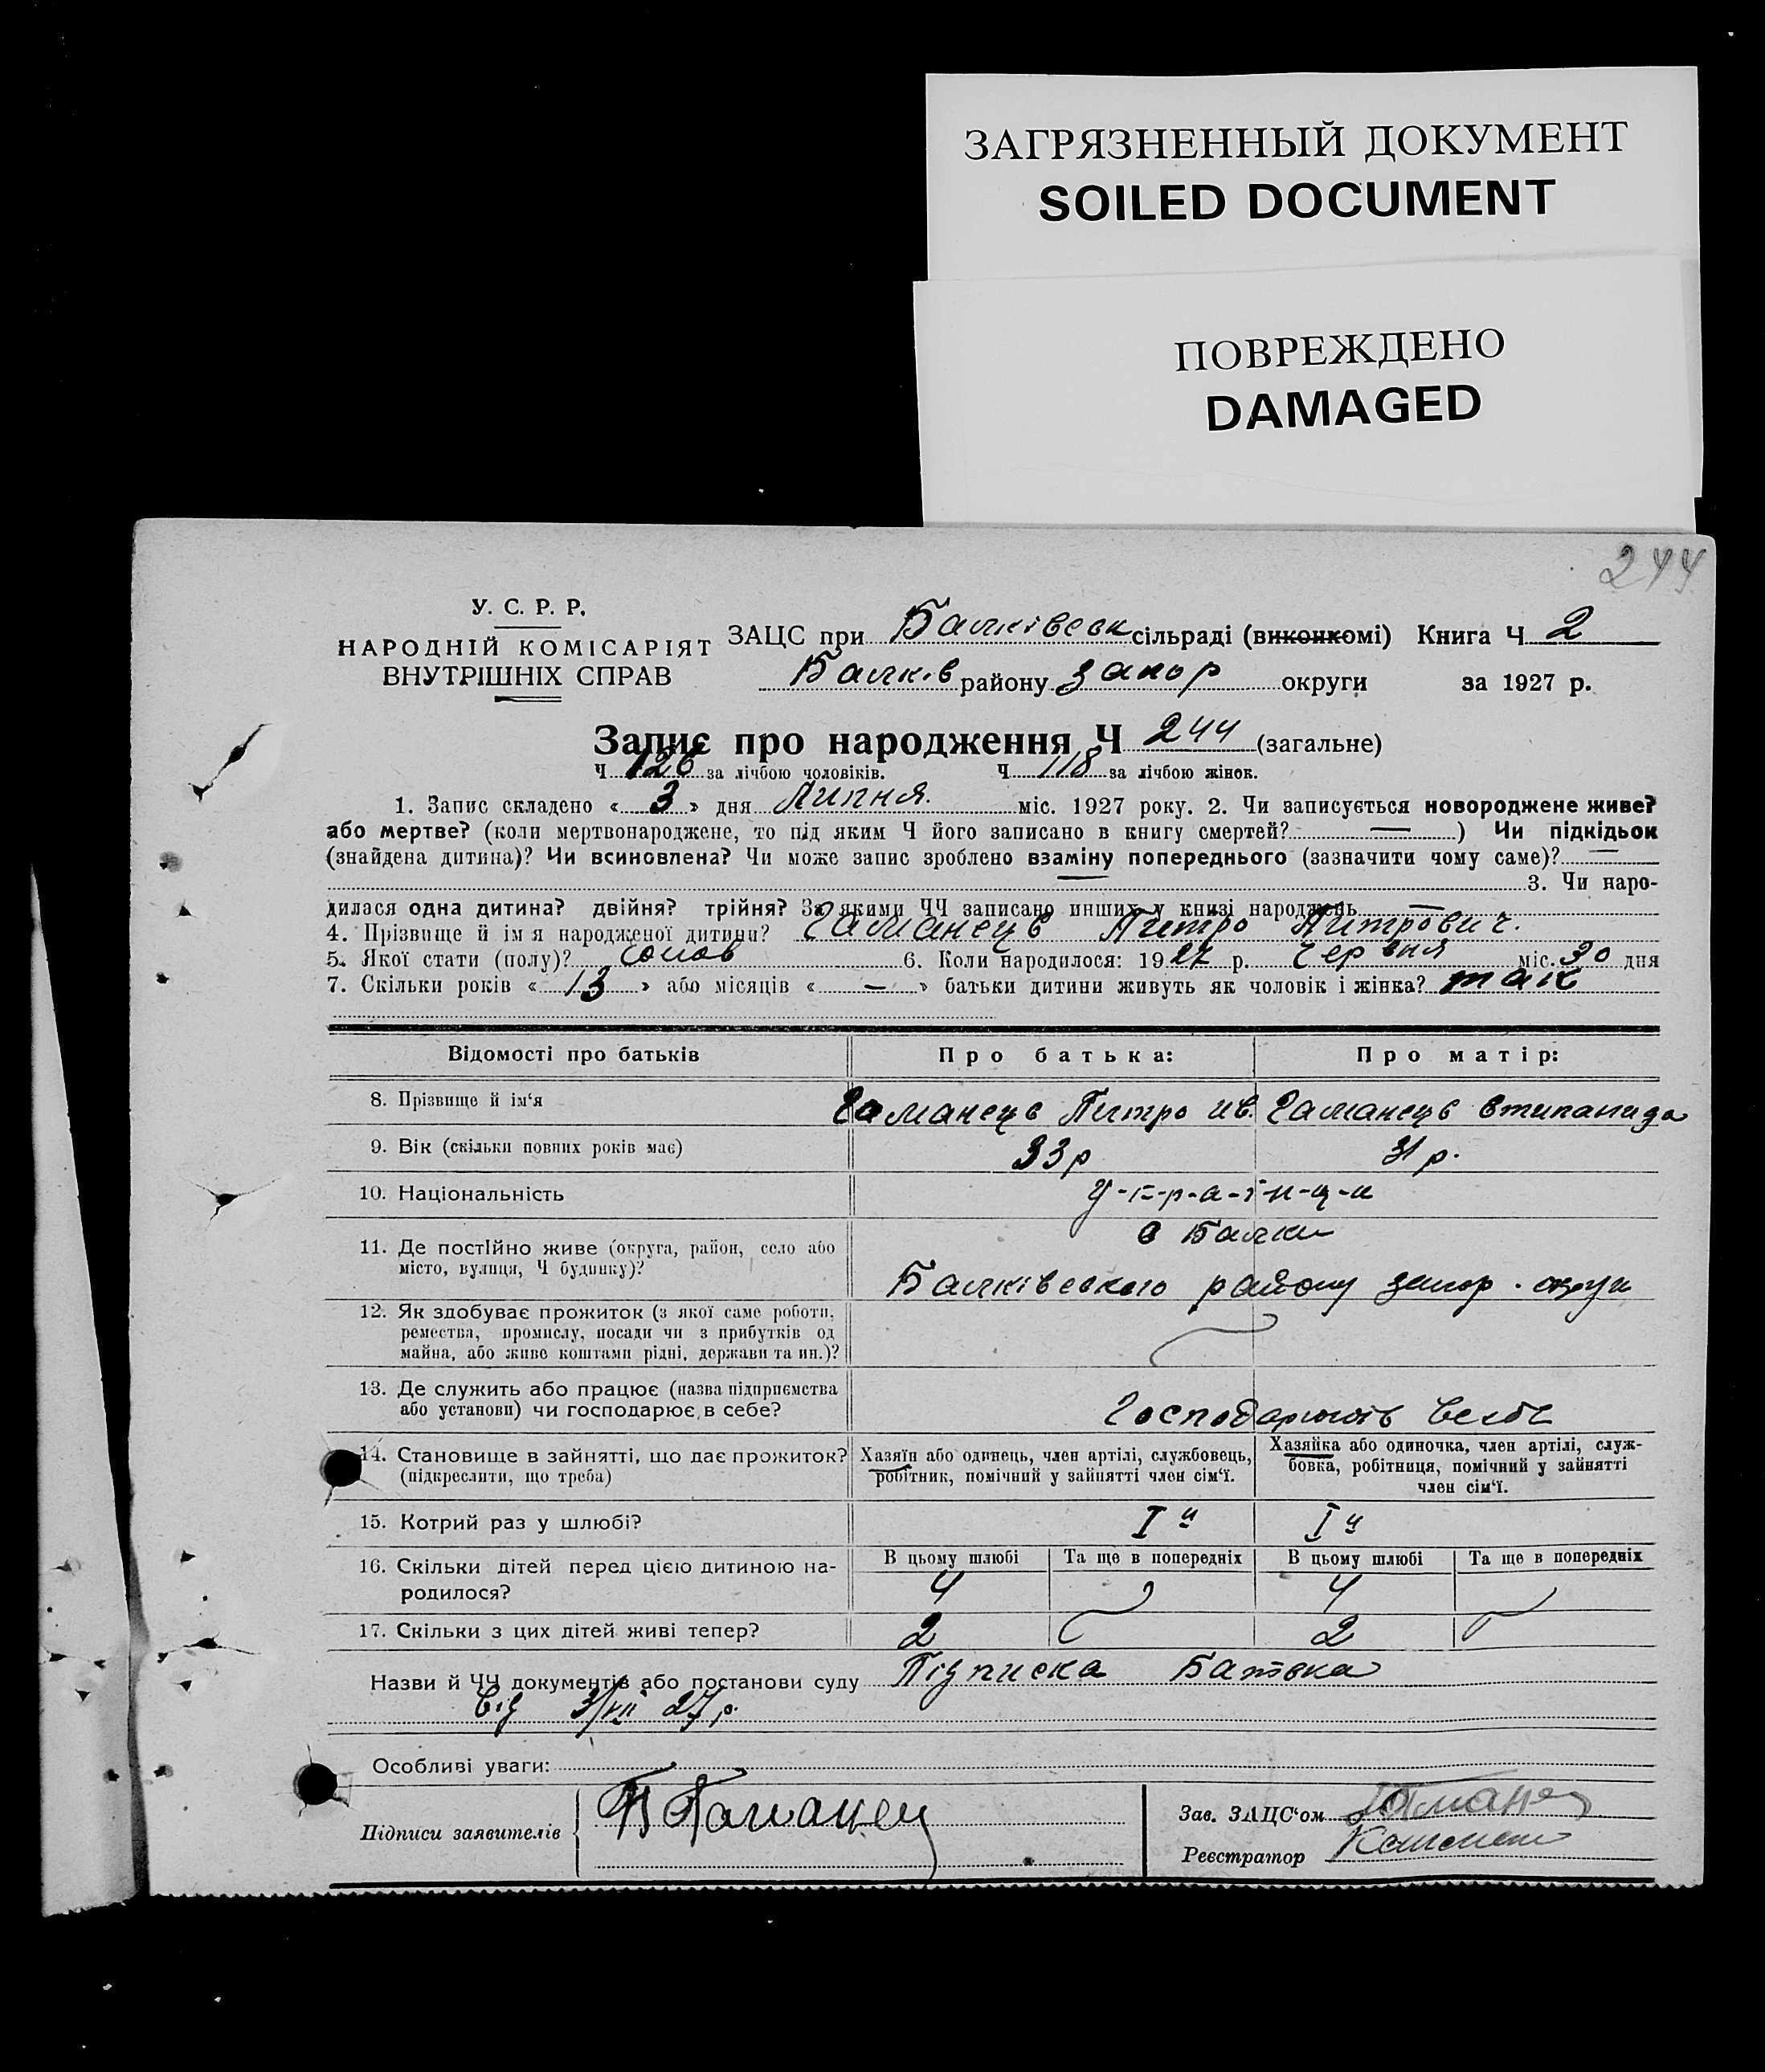 ЗАГРЯЗНЕННЫЙ ДОКУМЕНТ
SOILED DOCUMENT
ПОВРЕЖДЕНО
DAMAGED
244
У. С. Р. Р.
НАРОДНІЙ КОМІСАРІЯТ
ВНУТРІШНІХ СПРАВ
ЗАЦС при Балківськ сільраді (виконкомі) Книга Ч 2
Балків району Запор округи за 1927 р.
Запис про народження Ч 244 (загальне)
Ч 126 за лічбою чоловіків. Ч 118 за лічбою жінок.
1. Запис складено « 3 » дня Липня. міс. 1927 року. 2. Чи записується новороджене живе?
або мертве? (коли мертвонароджене, то під яким Ч його записано в книгу смертей? — ) Чи підкідьок
(знайдена дитина)? Чи всиновлена? Чи може запис зроблено взаміну попереднього (зазначити чому саме)? —
3. Чи наро-
дилася одна дитина? двійня? трійня? За якими ЧЧ записано инших у книзі народжень —
4. Прізвище й ім я народженої дитини? Гаманець Питро Питрович.
5. Якої стати (полу)? 6. Коли народилося: 1927 р. Червня міс. 30 дня
7. Скільки років « 13 » або місяців « — » батьки дитини живуть як чоловік і жінка? так
Відомості про батьків
Про батька:
Про матір:
8. Прізвище й ім‘я
Гаманець Питро Ив. Гаманець Стипанида
9. Вік (скільки повних років має)
33 р 31 р.
10. Національність
У-к-р-а-ї-н-ц-и
11. Де постійно живе (округа, район, село або
місто, вулиця, Ч будинку)?
с Балки
Балківського району запор. округи
12. Як здобуває прожиток (з якої саме роботи,
ремества, промислу, посади чи з прибутків од
майна, або живе коштами рідні, держави та ин.)?
13. Де служить або працює (назва підприємства
або установи) чи господарює в себе?
Господарюють в себе
14. Становище в зайнятті, що дає прожиток?
(підкреслити, що треба)
Хазяїн або одинець, член артілі, службовець,
робітник, помічний у зайнятті член сім‘ї.
Хазяйка або одиночка, член артілі, служ-
бовка, робітниця, помічний у зайнятті
член сім‘ї.
15. Котрий раз у шлюбі?
I й I й
16. Скільки дітей перед цією дитиною на-
родилося?
В цьому шлюбі Та ще в попередніх В цьому шлюбі Та ще в попередніх
4 4
17. Скільки з цих дітей живі тепер?
2 2
Назви й ЧЧ документів або постанови суду Підписка Батька
Від 3/VII 27 р.
Особливі уваги:
Підписи заявителів
П Гаманец
Зав. ЗАЦС‘ом Гаманец
Реєстратор